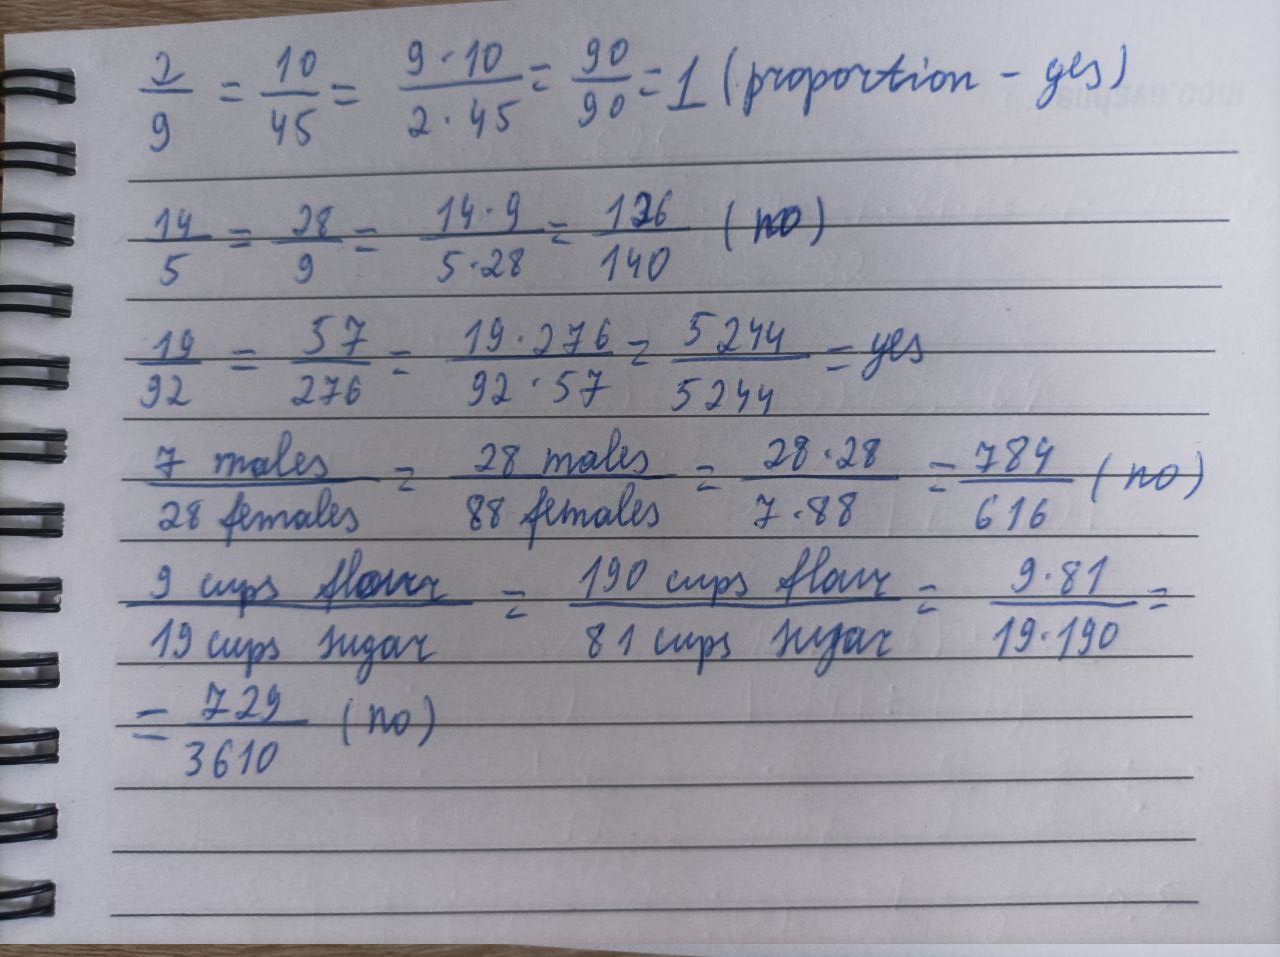 2/9 = 10/45 = 9·10/2·45 = 90/90 = 1 (proportion - yes)
14/5 = 28/9 = 14·9/5·28 = 126/140 (no)
19/92 = 57/276 = 19·276/92·57 = 5244/5244 = yes
7 males/28 females = 28 males/88 females = 28·28/7·88 = 784/616 (no)
9 cups flour/19 cups sugar = 190 cups flour/81 cups sugar = 9·81/19·190 =
= 729/3610 (no)